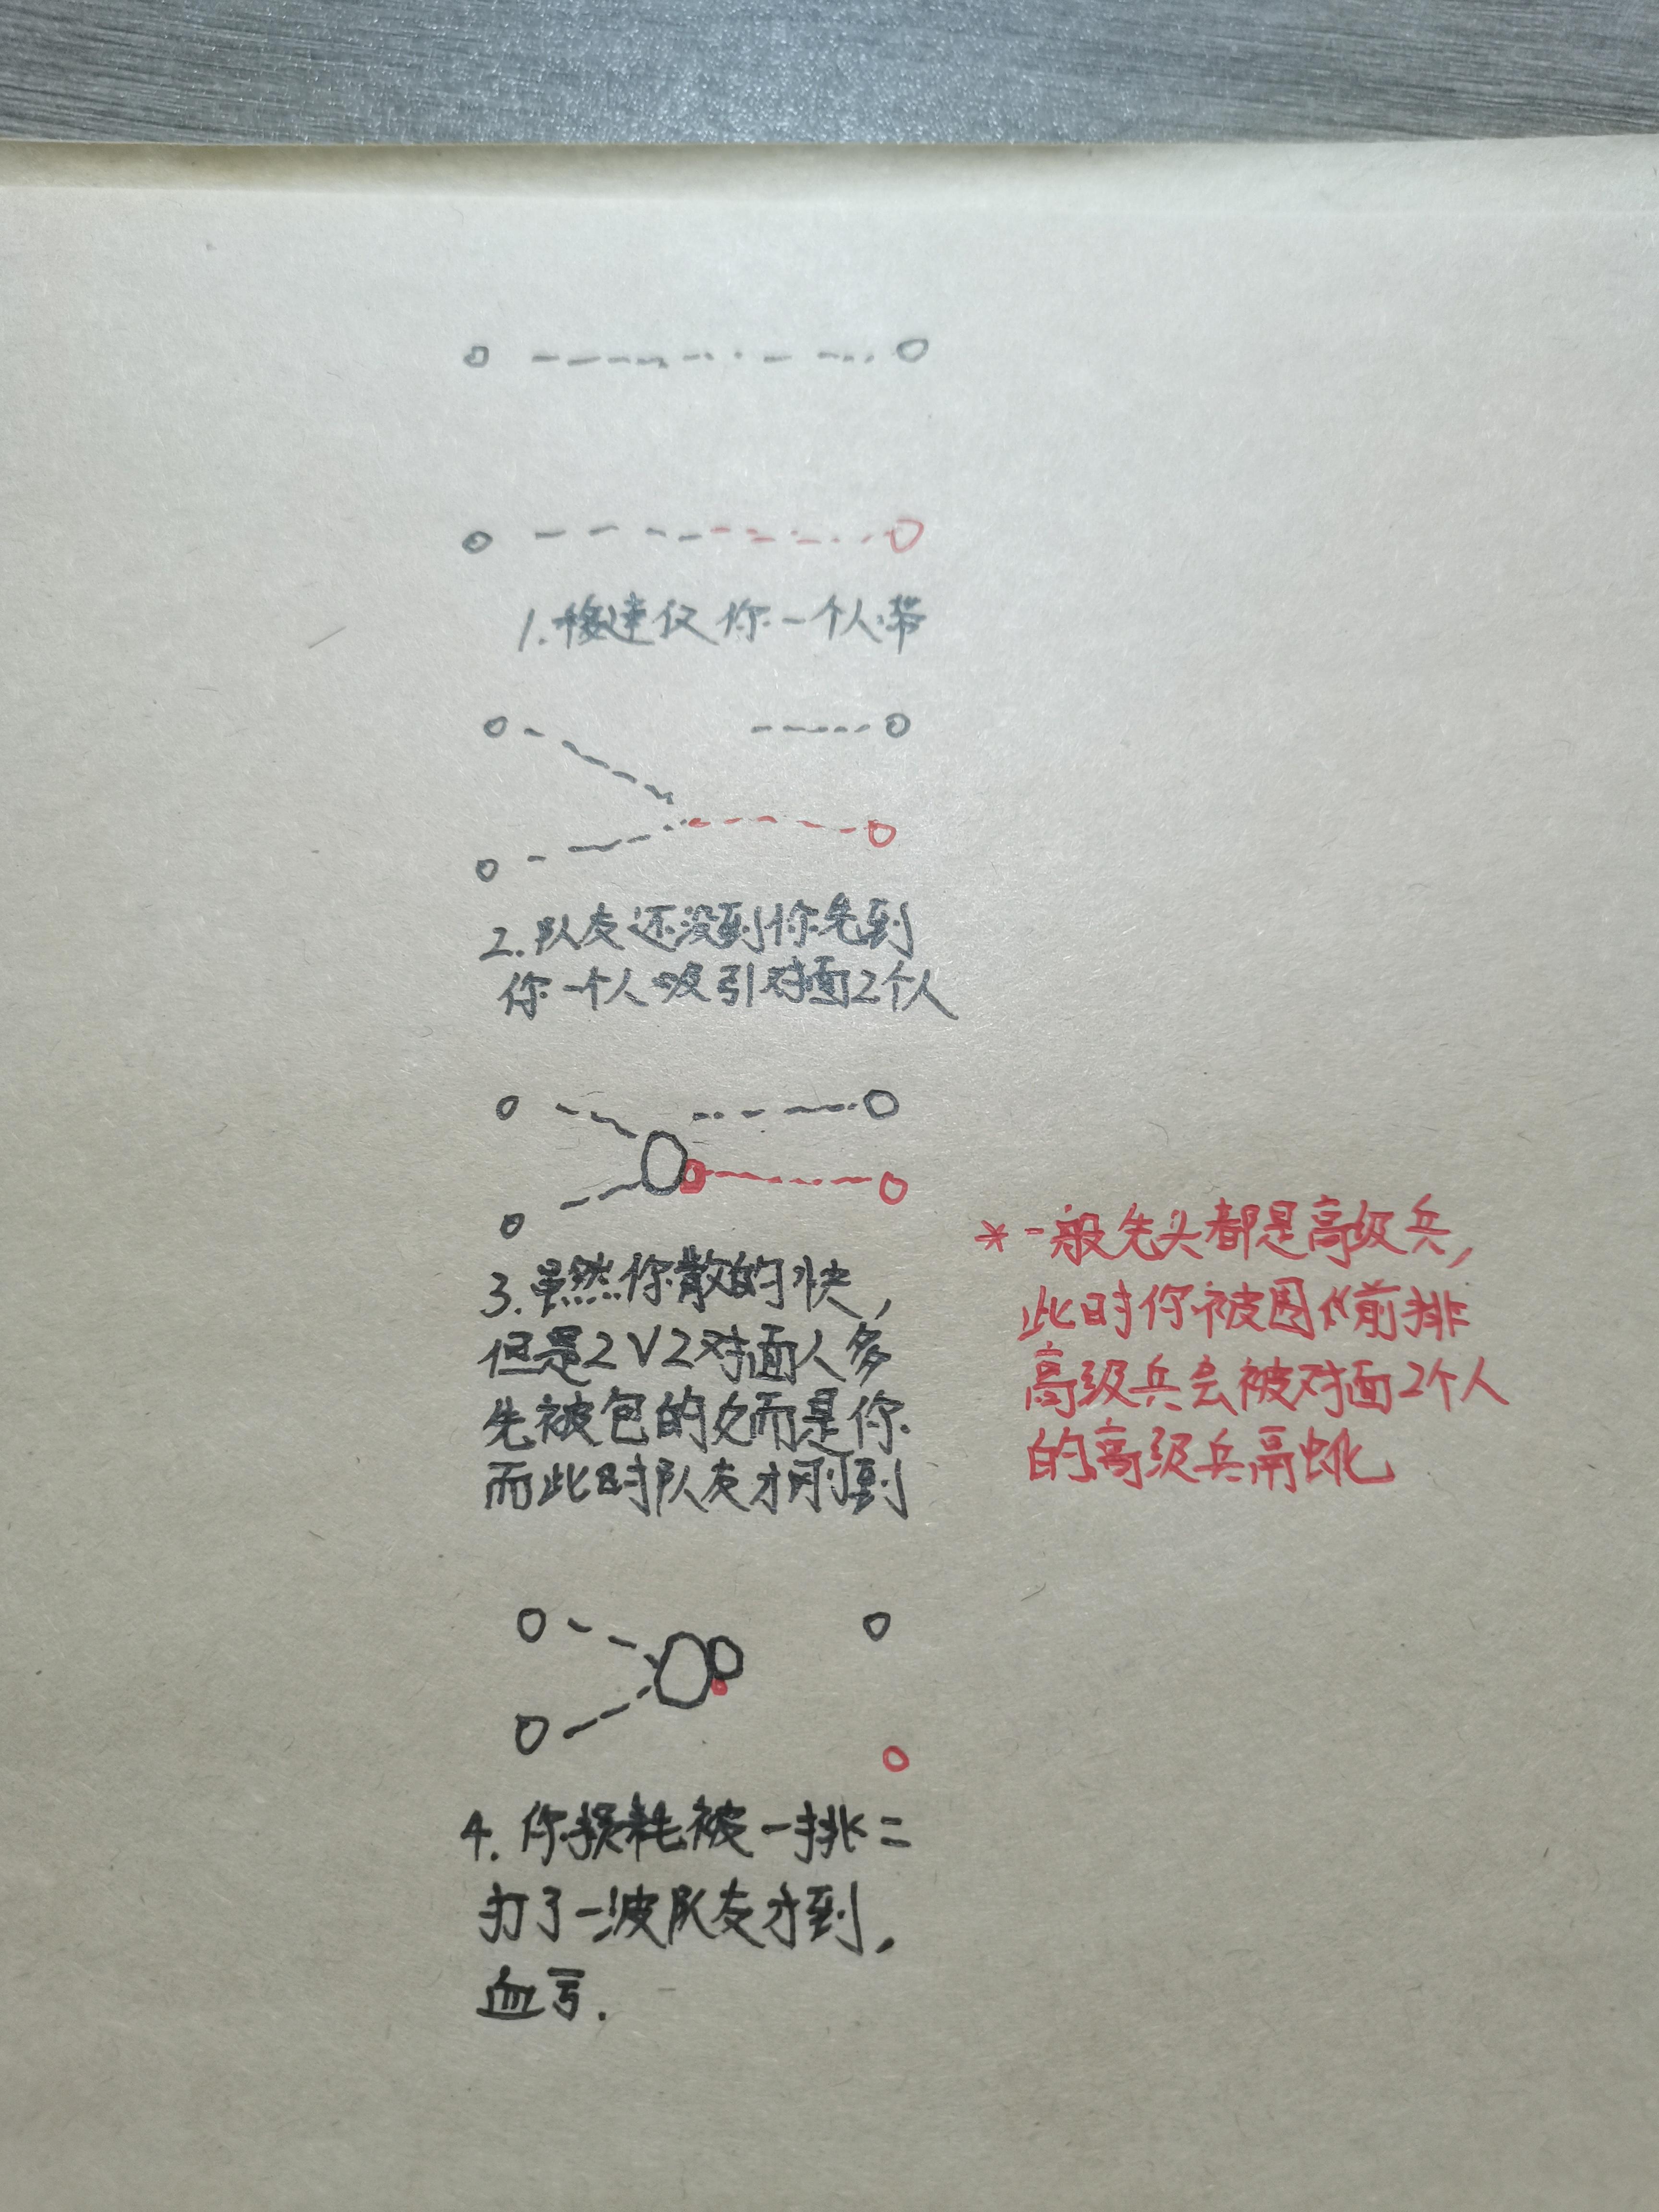 1.移速仅你一个人带
2.队友还没到你先到
你一个人吸引对面2个人
3.虽然你散的快,
但是2V2对面人多
先被包的反而是你
而此时队友才刚到
*一般先头都是高级兵,
此时你被围 前排
高级兵会被对面2个人
的高级兵
4.你损耗被一挑二
打了一波队友才到,
血亏.